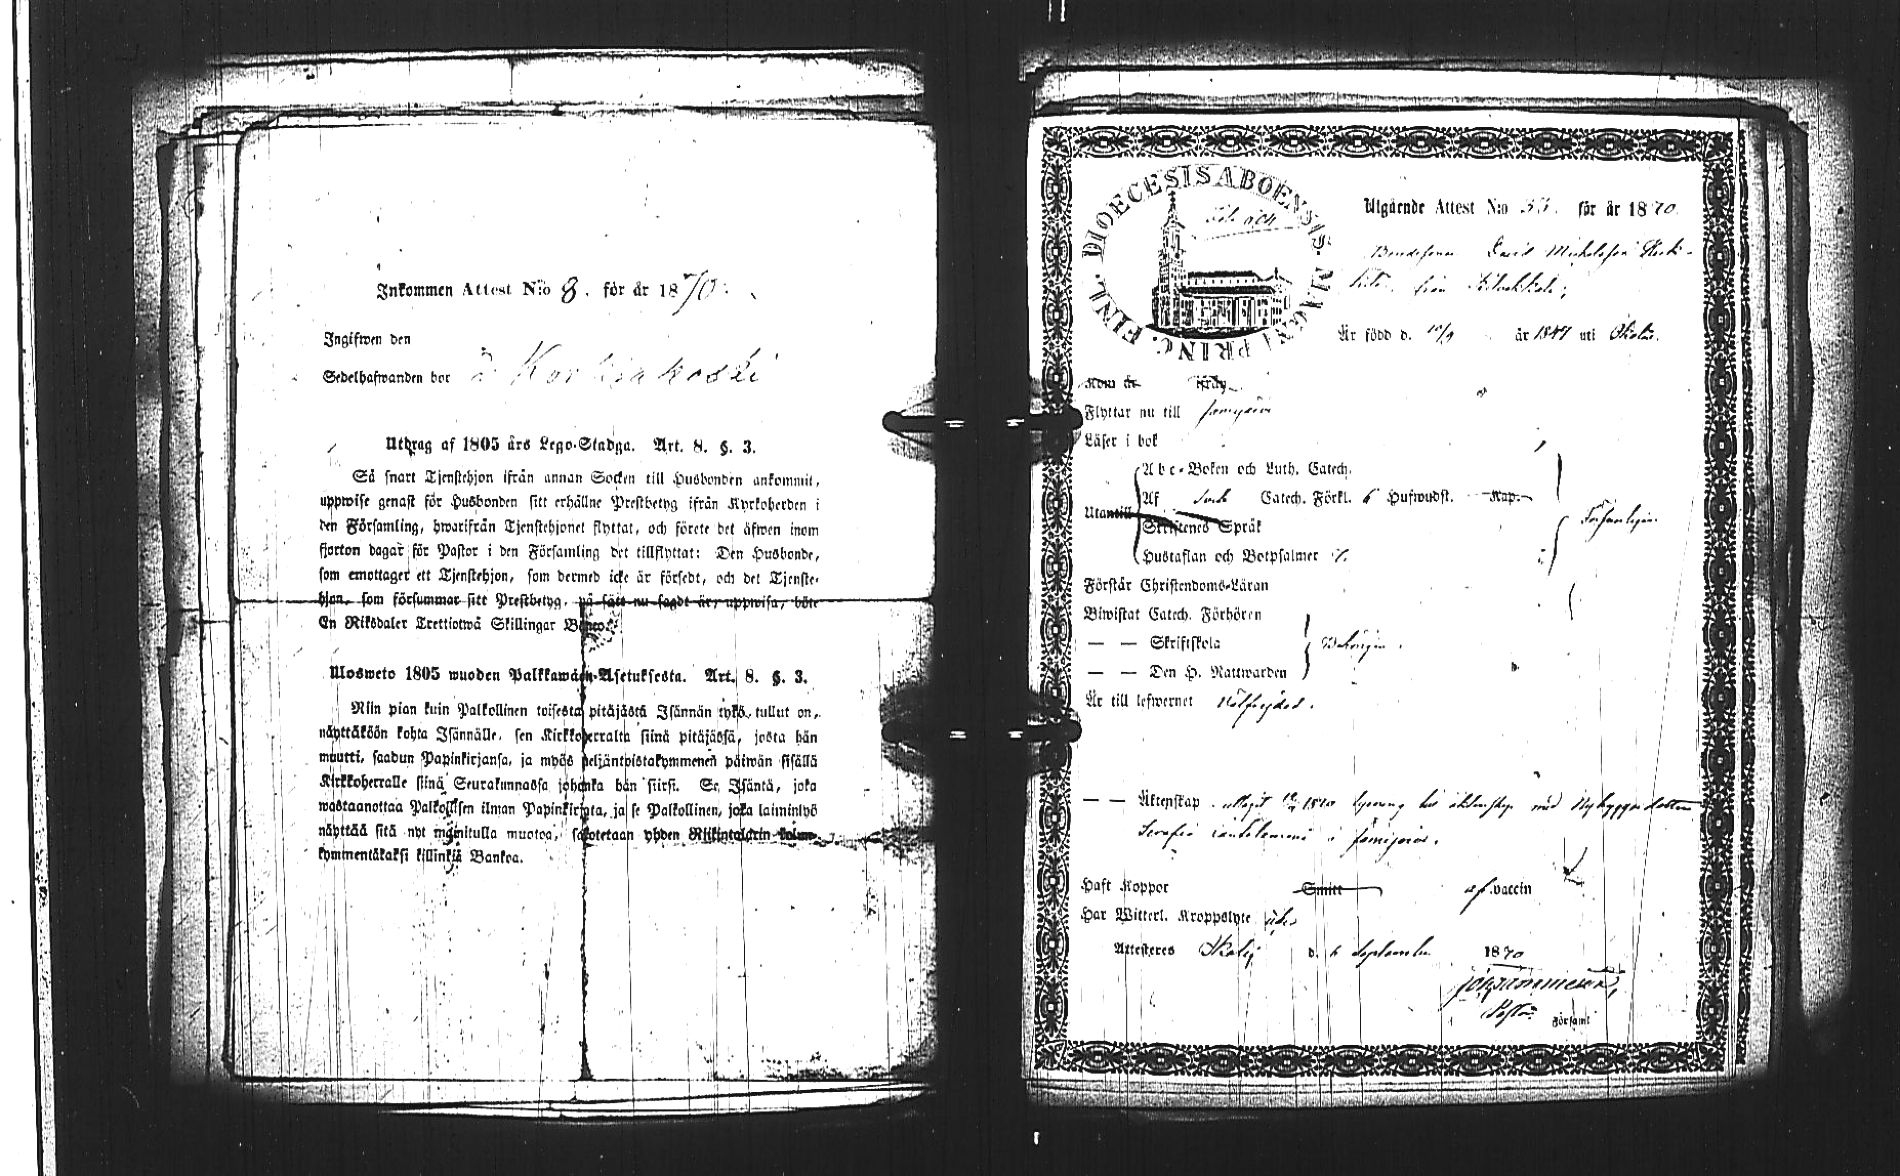 Inkommen Attest N:o 8. för år 1870.
Ingifwen den
Sedelhafwanden bor å Kortiakoski
Utdrag af 1805 års Lego-Stadga. Art. 8. §. 3.
Så snart Tjenstehjon ifrån annan Socken till Husbonden ankommit,
uppwise genast för Husbonden sitt erhållne Prestbetyg ifrån Kyrkoherden i
den Församling, hwarifrån Tjenstehjonet flyttat, och förete det äfwen inom
fjorton dagar för Pastor i den Församling det tillflyttat: Den Husbonde,
som emottager ett Tjenstehjon, som dermed icke är försedt, och det Tjenste-
hjon, som försummar sitt Prestbetyg, på sätt nu sagdt är, uppwisa, böte
En Riksdaler Trettiotwå Skillingar Banco.
Ulosweto 1805 wuoden Palkkawäen-Asetuksesta. Art. 8. §. 3.
Niin pian kuin Palkollinen toisesta pitäjästä Isännän tykö tullut on,
näyttäköön kohta Isännälle, sen Kirkkoherralta siinä pitäjässä, josta hän
muutti, saadun Papinkirjansa, ja myös neljäntoistakymmenen päiwän sisällä
Kirkkoherralle siinä Seurakunnassa johonka hän siirsi. Se Isäntä, joka
wastaanottaa Palkollisen ilman Papinkirjata, ja se Palkollinen, joka laiminlyö
näyttää sitä nyt mainitulla muotoa, sakotetaan yhden Riikintalarin kolme-
kymmentäkaksi killinkiä Bankoa.
DIOECESIS ABOENSIS. MAGNI PRINC. FINL.
Utgående Attest N:o 33. för år 1870.
Bondesonen David Michelsson
från
Är född d. 10/9 år 1847 uti Ikalis.
Kom år från
Flyttar nu till Jämijärvi
Läser i bok
Abc-Boken och Luth. Catech.
Utantill Af Catech. Förkl. 6 Hufwudst. Kap.
Skriftenes Språk
Hustaflan och Botpsalmer
Förstår Christendoms-Läran
Biwistat Catech. Förhören
— — Skriftskola
— — Den H. Nattwarden
Är till lefwernet Wälfrejdad.
— — Äktenskap 1870 lysning till äktenskap med Nybyggaredottren
Serafia i Jämijärvi.
Haft Koppor Smitt af vaccin
Har Witterl. Kroppslyte
Attesteres Ikalis d. 6 September 1870
Pastor Församl